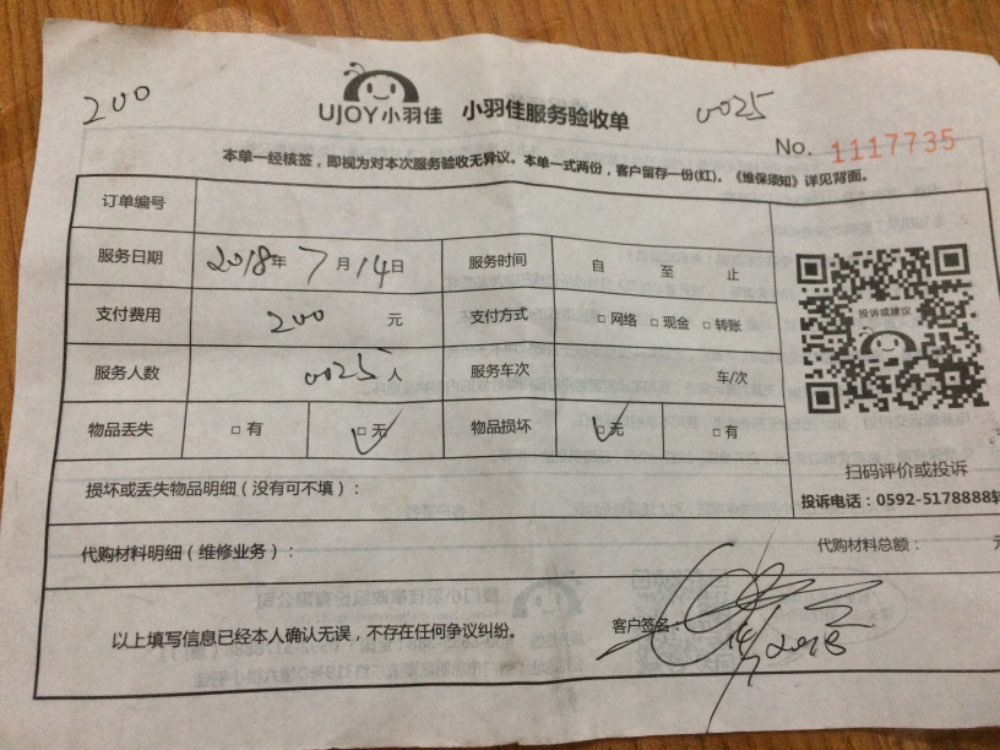 200
UJOY小羽佳 小羽佳服务验收单
0025
No. 1117735
本单一经核签，即视为对本次服务验收无异议。本单一式两份，客户留存一份(红)。《维保须知》详见背面。
订单编号
服务日期 2018年 7月14日 服务时间 自 至 止
支付费用 200 元 支付方式 □网络 □现金 □转账
服务人数 0025人 服务车次 车/次
物品丢失 □有 □无 物品损坏 □无 □有
投诉或建议
扫码评价或投诉
投诉电话：0592-5178888转
损坏或丢失物品明细（没有可不填）：
代购材料明细（维修业务）： 代购材料总额： 元
以上填写信息已经本人确认无误，不存在任何争议纠纷。 客户签名：
14/7 2018